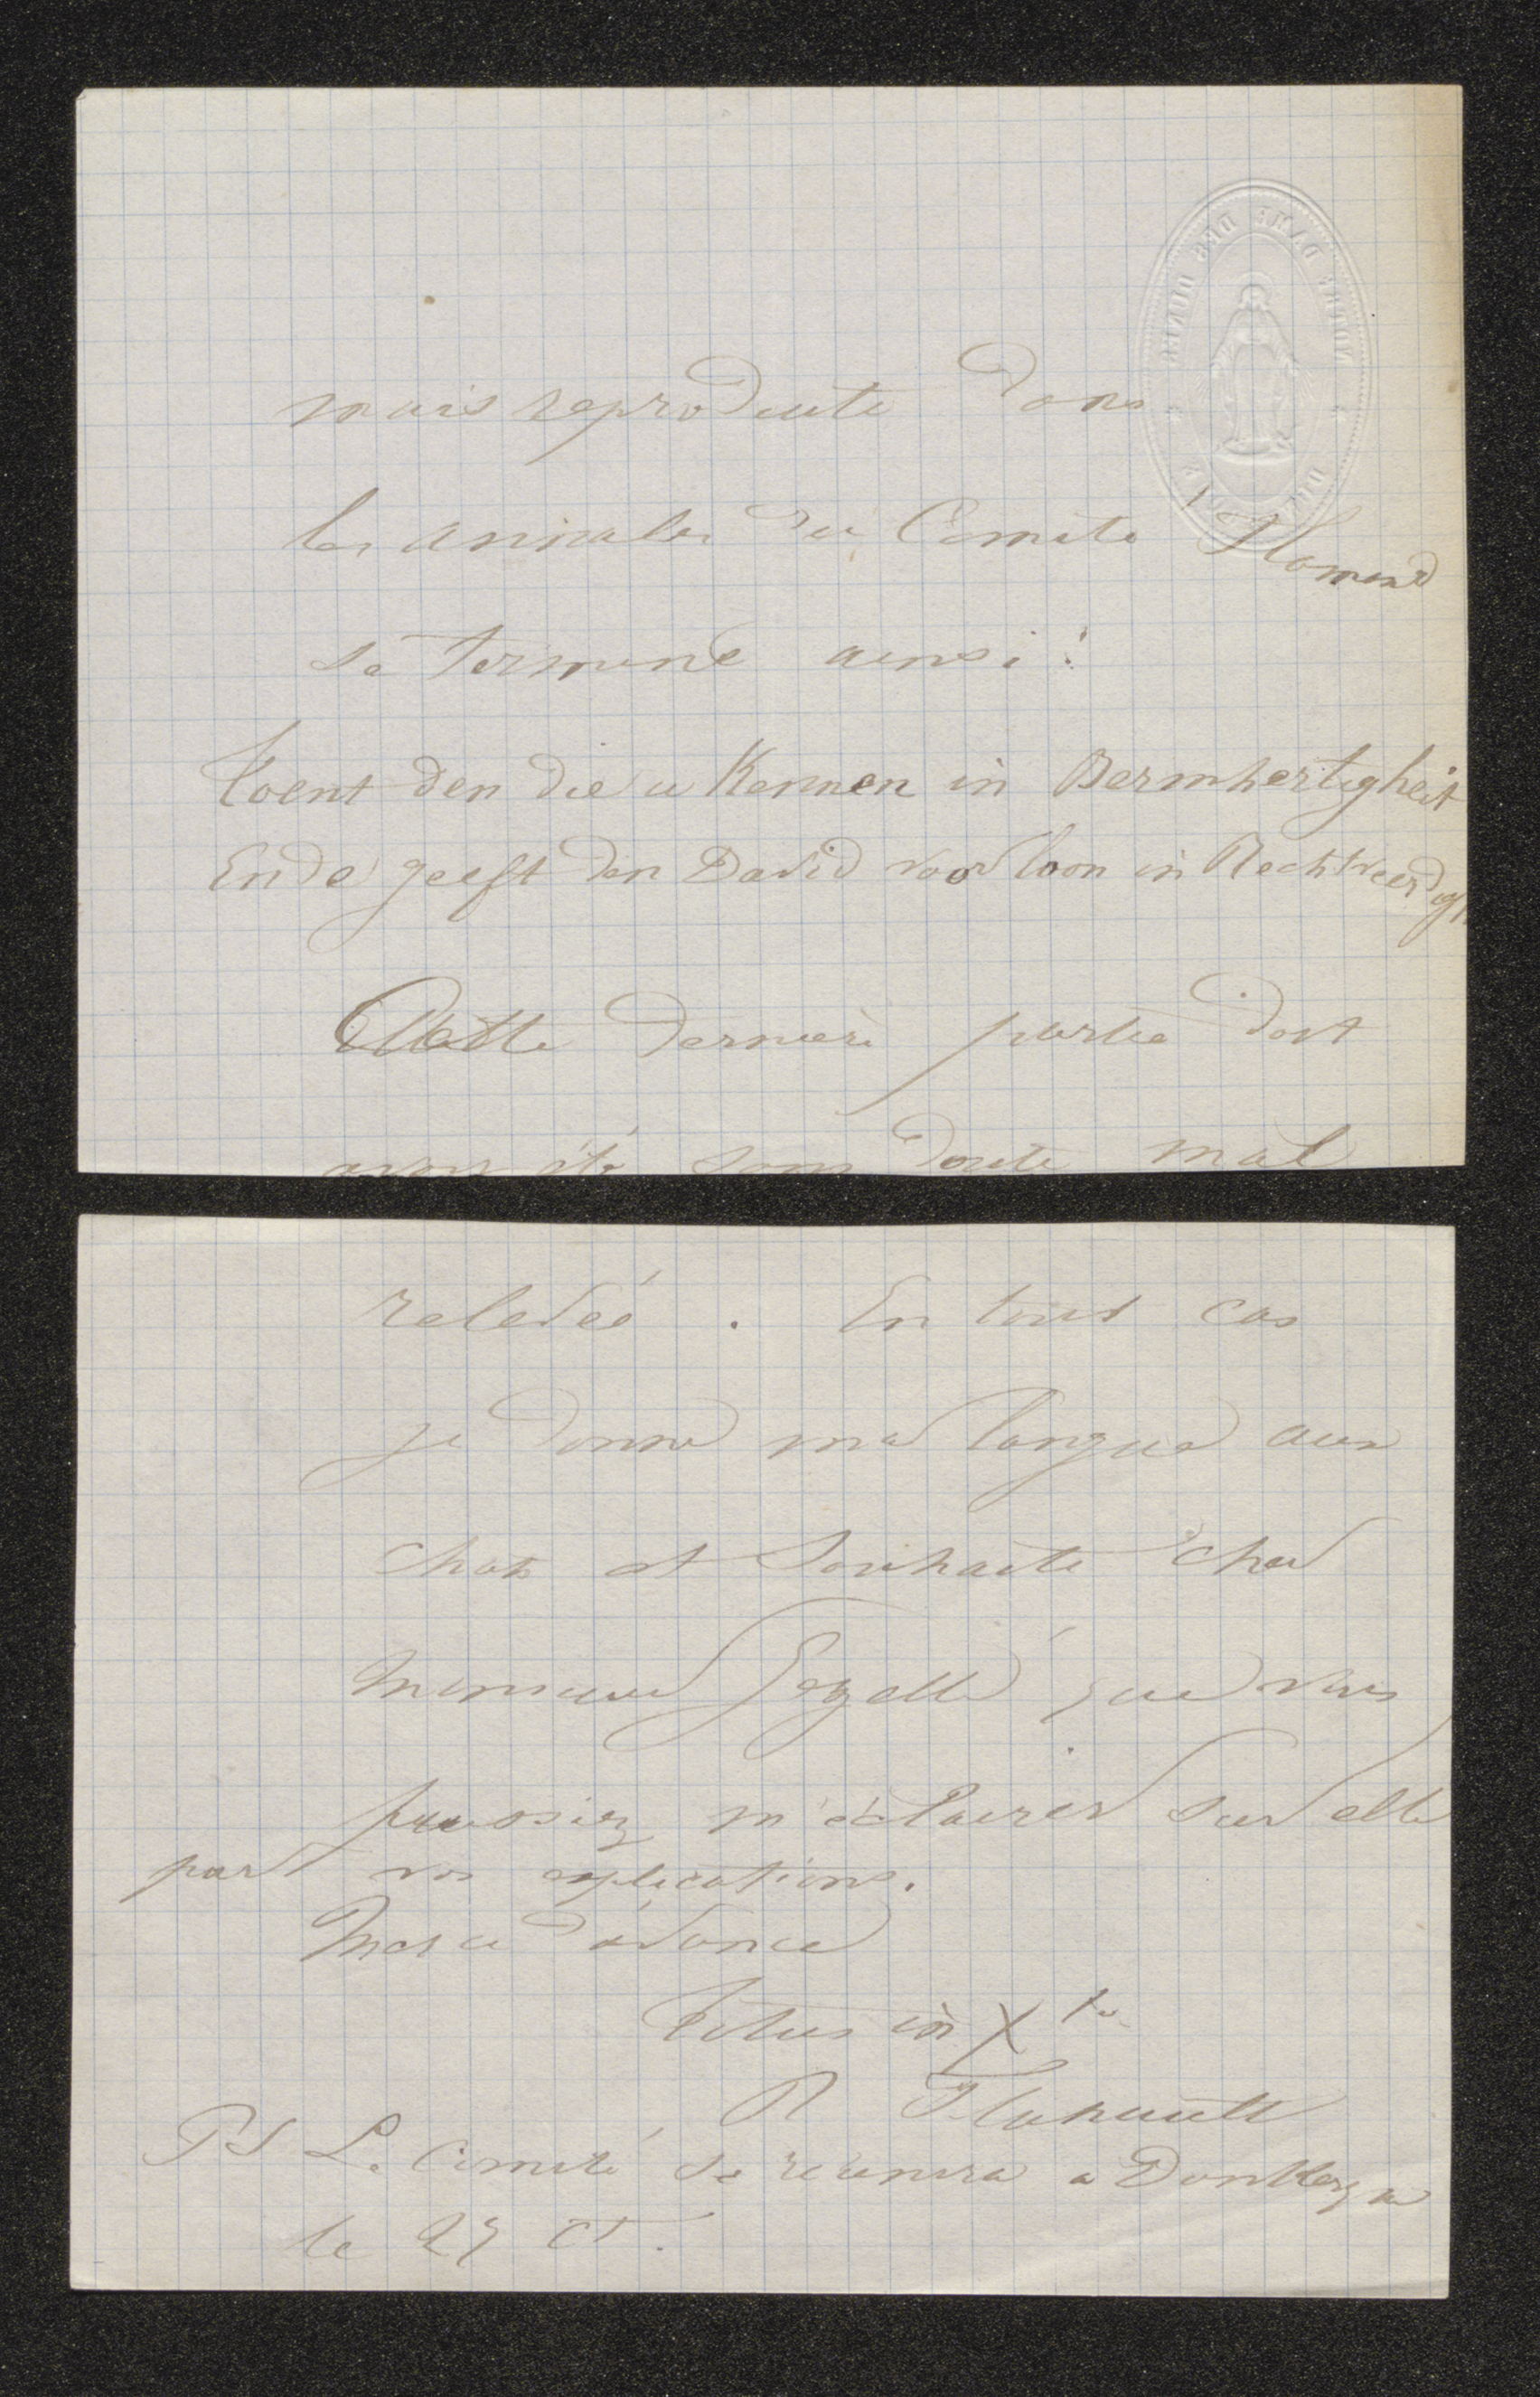 NOTRE DAME DES DUNES
mais reproduite dans
les annales du Comité Flamand
se termine ainsi:
toent den die u Kennen in Bermhertigheit
Ende geeft den David voor loon in Rechtveerdigh
Cette dernière partie doit
avoir été sans doute mal
relevée. En tout cas
je donne ma langue aux
chats et souhaite cher
Monsieur Gezelle que vous
puissiez m'éclairer sur elle
par vos explications.
Merci d'avance
Totus in Xto
R Flahault
PS Le Comité se réunira a Dunkerque
le 27 ct.